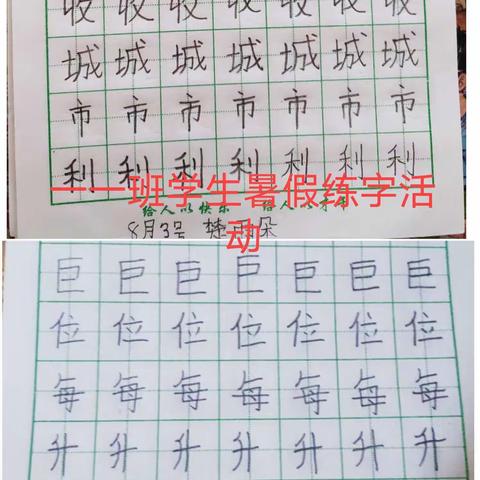 收 收 收 收 收 收 收
城 城 城 城 城 城 城
市 市 市 市 市 市 市
利 利 利 利 利 利 利
一一班学生暑假练字活动
给人以快乐 给人以
8月3号 楚雨朵
巨 巨 巨 巨 巨 巨 巨
位 位 位 位 位 位 位
每 每 每 每 每 每 每
升 升 升 升 升 升 升